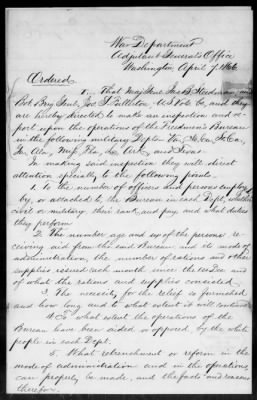 War Department
Adjutant General's Office
Washington April 7, 1866
Ordered
1... That Maj Genl Jas B. Steedman, and
Bvt Brig Genl. Jos. S. Fullerton, U.S. Vols be, and they
are hereby directed to make an inspection and re-
port upon the operations of the Freedmen's Bureau
in the following military Depts Va, N. Ca, S. Ca,
Ga, Ala, Miss, Fla, La, Ark, and Texas.
In making said inspection they will direct
attention specially to the following points.
1. To the number of officers and persons employed
by, or attached to the Bureau in each Dept, whether
civil or military; their rank, and pay and what duties
they perform.
2. The number age and sex of the persons re-
ceiving aid from the said Bureau and its mode of
administration, the number of rations and other
supplies issued each month since the and
of what the rations and supplies consisted.
3. The necessity for the relief so furnished
and how long and to what extent it will continue
4. To what extent the operations of the
Bureau have been aided or opposed by the white
people in each Dept.
5. What retrenchment or reform in the
mode of administration and in the operations,
can properly be made, and the facts and reasons
therefor.